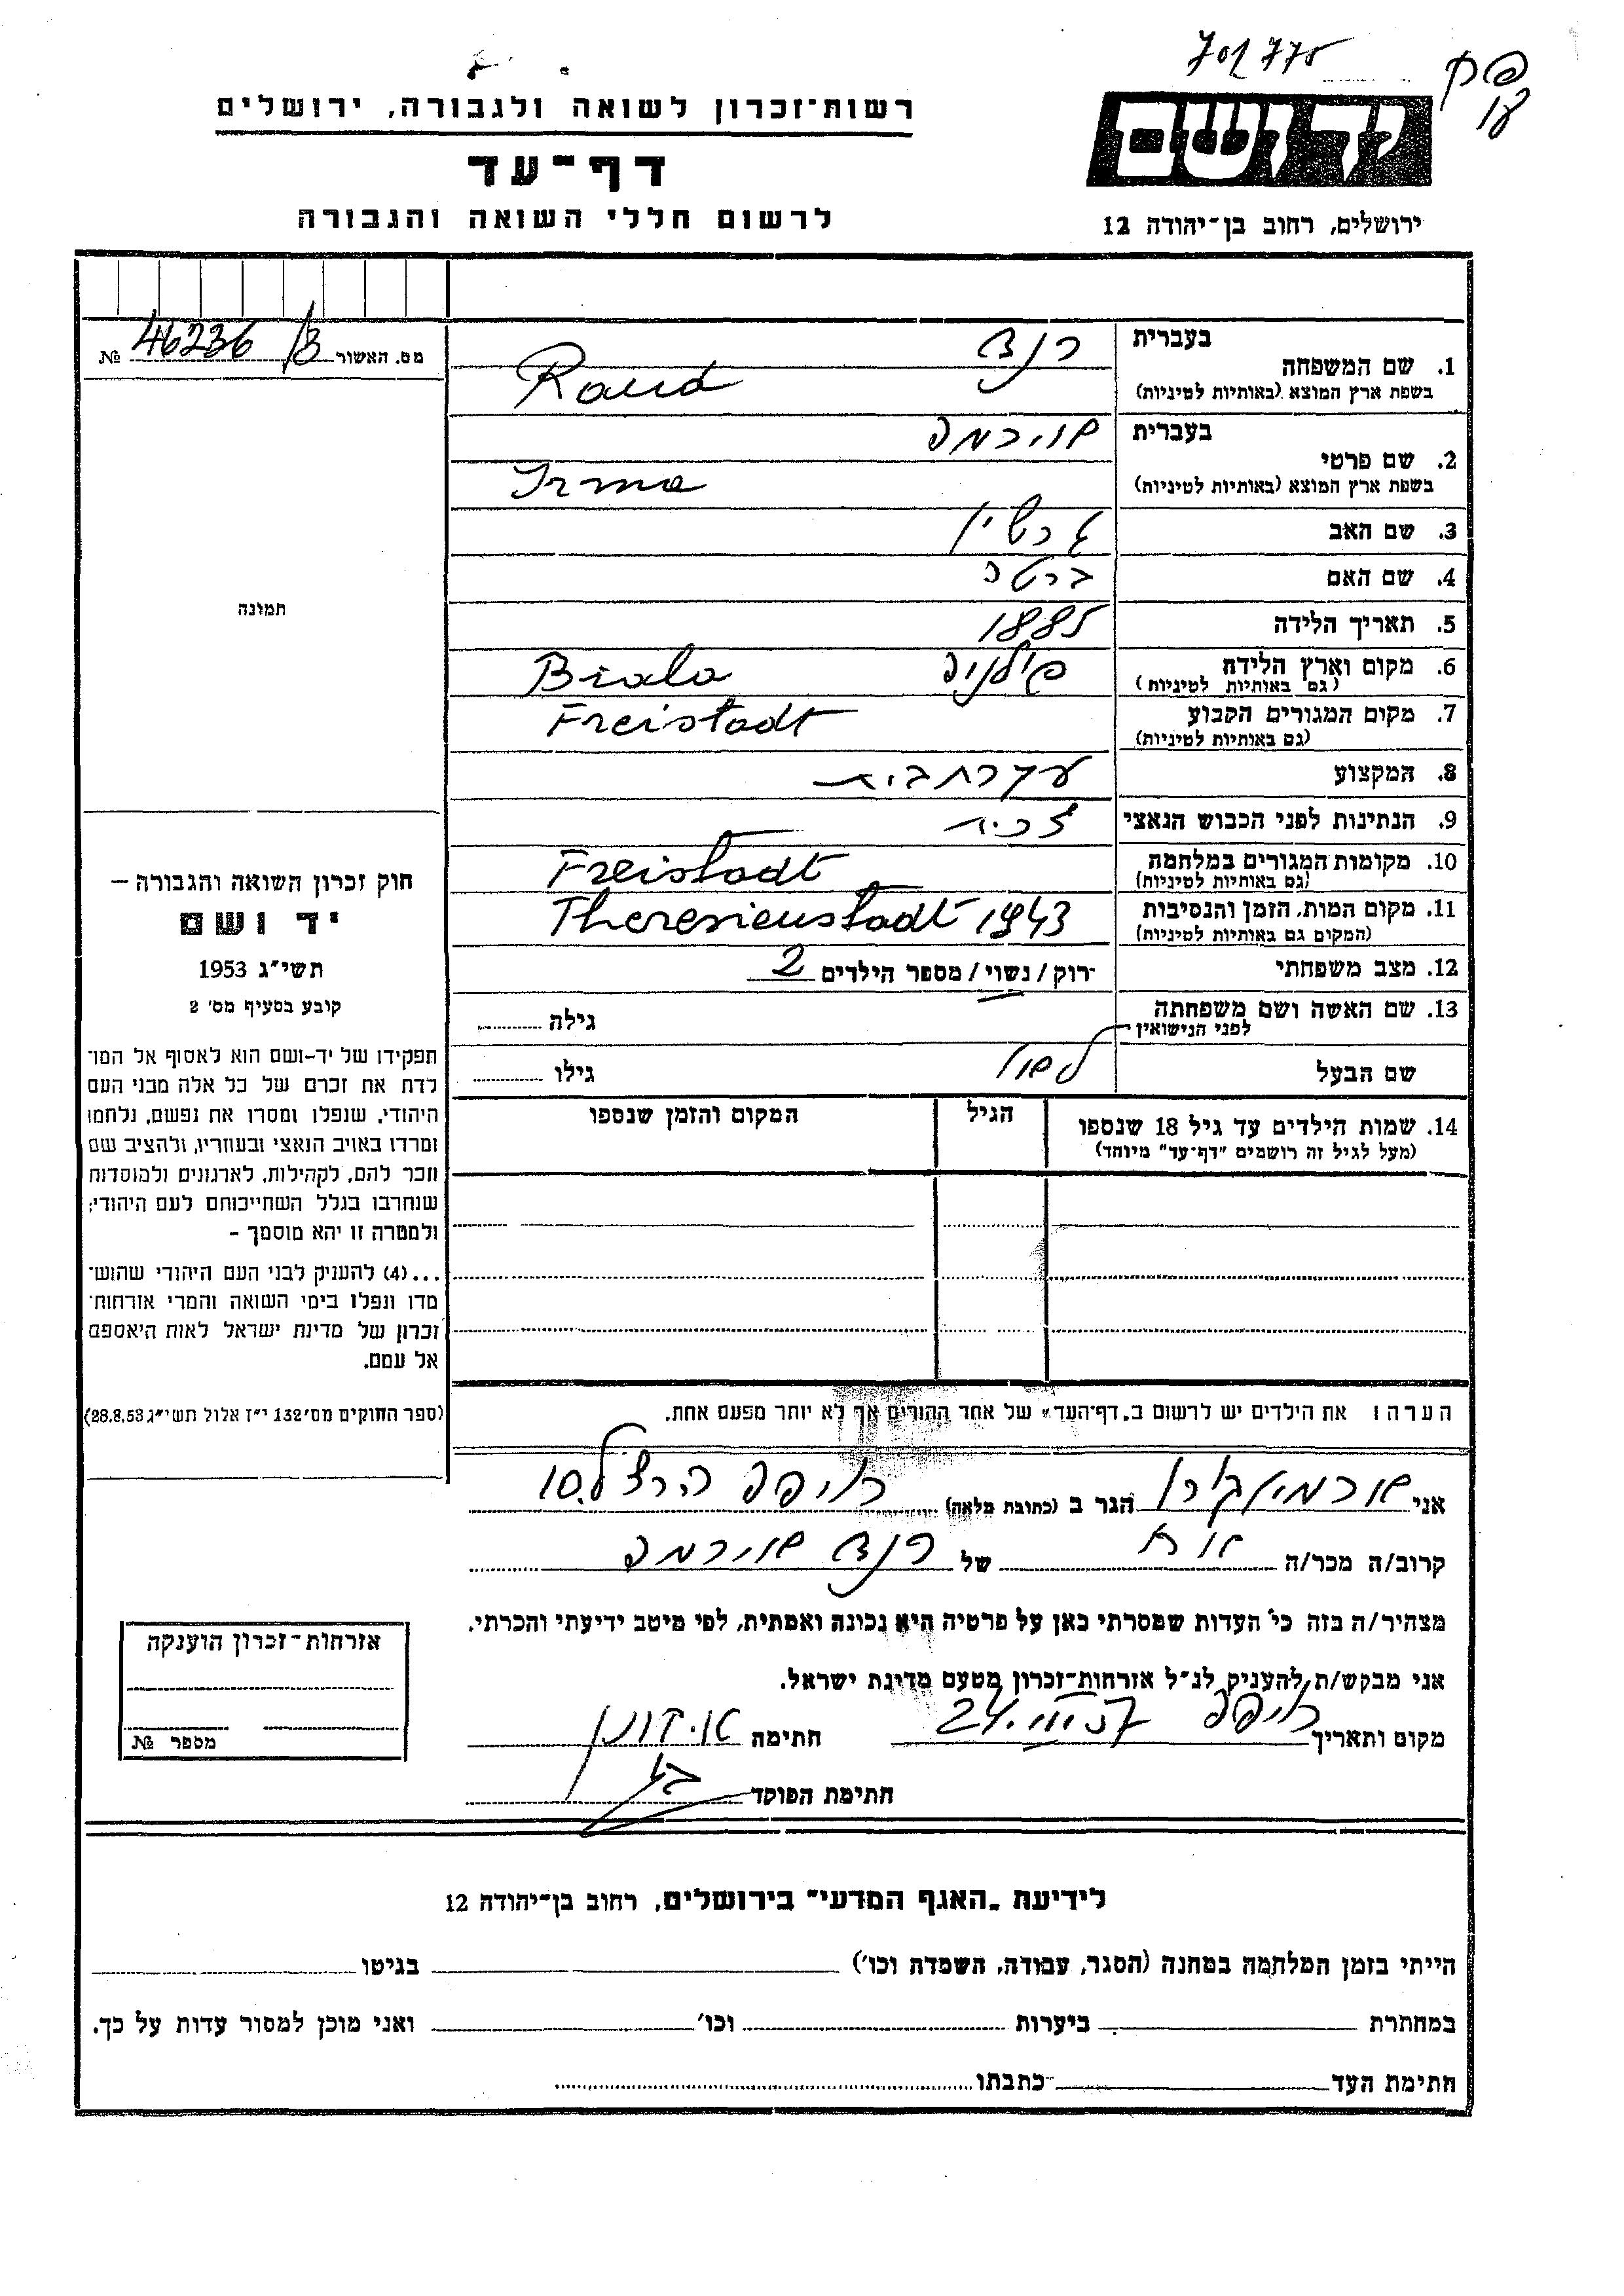 רשות־זכרון לשואה ולגבורה, ירושלים
דף־עד
לרשום חללי השואה והגבורה
ידושם
ירושלים, רחוב בן־יהודה 12
מס. האשור 46236/13 №
תמונה
חוק זכרון השואה והגבורה –
יד ושם
תשי״ג 1953
קובע בסעיף מס׳ 2
תפקידו של יד-ושם הוא לאסוף אל המו־
לדת את זכרם של כל אלה מבני העם
היהודי, שנפלו ומסרו את נפשם, נלחמו
ומרדו באויב הנאצי ובעוזריו, ולהציב שם
וזכר להם, לקהילות, לארגונים ולמוסדות
שנחרבו בגלל השתייכותם לעם היהודי;
ולמטרה זו יהא מוסמך –
...(4) להעניק לבני העם היהודי שהוש־
מדו ונפלו בימי השואה והמרי אזרחות־
זכרון של מדינת ישראל לאות היאספם
אל עמם.
(ספר החוקים מס׳ 132 י״ז אלול תשי״ג 28.8.53)
בעברית רנד
1. שם המשפחה
בשפת ארץ המוצא (באותיות לטיניות) Rand
בעברית אירמה
2. שם פרטי
בשפת ארץ המוצא (באותיות לטיניות) Irma
3. שם האב
4. שם האם ברטה
5. תאריך הלידה 1885
6. מקום וארץ הלידה פולניה Biala
(גם באותיות לטיניות)
7. מקום המגורים הקבוע Freistadt
(גם באותיות לטיניות)
8. המקצוע עקרת בית
9. הנתינות לפני הכבוש הנאצי
10. מקומות המגורים במלחמה Freistadt
(גם באותיות לטיניות)
11. מקום המות, הזמן והנסיבות Theresienstadt 1943
(המקום גם באותיות לטיניות)
12. מצב משפחתי רוק / נשוי / מספר הילדים 2
13. שם האשה ושם משפחתה
לפני הנישואין גילה
שם הבעל גילו
14. שמות הילדים עד גיל 18 שנספו הגיל המקום והזמן שנספו
(מעל לגיל זה רושמים "דף־עד" מיוחד)
הערה: את הילדים יש לרשום ב„דף־העד" של אחד ההורים אך לא יותר מפעם אחת.
אני הגר ב (כתובת מלאה) חיפה הרצל 10
קרוב/ה מכר/ה של רנד אירמה
מצהיר/ה בזה כי העדות שמסרתי כאן על פרטיה היא נכונה ואמתית, לפי מיטב ידיעתי והכרתי.
אני מבקש/ת להעניק לנ״ל אזרחות־זכרון מטעם מדינת ישראל.
מקום ותאריך חיפה חתימה
חתימת הפוקד
אזרחות־זכרון הוענקה
מספר №
לידיעת „האגף המדעי" בירושלים, רחוב בן־יהודה 12
הייתי בזמן המלחמה במחנה (הסגר, עבודה, השמדה וכו׳) בגיטו
במחתרת ביערות וכו׳ ואני מוכן למסור עדות על כך.
חתימת העד כתבתו